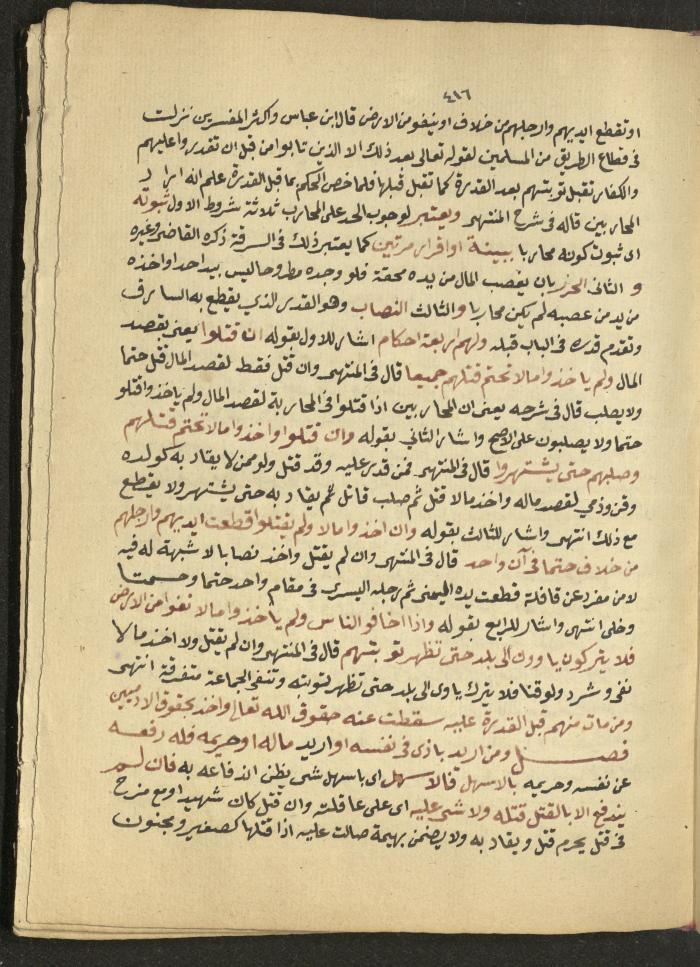 ٤١٦
او تقطع ايديهم وارجلهم من خلاف او ينفو من الارض قال ابن عباس واكثر المفسرين نزلت
في قطاع الطريق من المسلمين لقوله تعالى بعد ذلك الا الذين تابوا من قبل ان تقدروا عليهم
والكفار تقبل توبتهم بعد القدرة كما تقبل قبلها فلما خص الحكم بما قبل القدرة علم انه اراد
المحاربين قاله في شرح المنتهى ويعتبر لوجوب الحد على المحارب ثلاثة شروط الاول ثبوته
اى ثبوت كونه محاربا ببينة او اقرار مرتين كما يعتبر ذلك في السرقة ذكره القاضي وغيره
و الثاني الحرز بان يغصب المال من يده محقة فلو وجده مطروحا ليس بيد احد او اخذه
من يد من غصبه لم يكن محاربا والثالث النصاب وهو القدر الذي يقطع به السارق
وتقدم قدره في الباب قبله ولهم اربعة احكام اشار للاول بقوله ان قتلوا يعني بقصد
المال ولم ياخذوا مالا تحتم قتلهم جميعا قال في المنتهى وان قتل فقط لقصد المال قتل حتما
ولا يصلب قال في شرحه يعنى ان المحاربين اذا قتلوا في المحاربة لقصد المال ولم ياخذوا قتلو
حتما ولا يصلبون على الاصح واشار الثاني بقوله وان قتلوا واخذوا مالا تحتم قتلهم
وصلبهم حتى يشتهروا قال في المنتهى فمن قدر عليه وقد قتل ولو ممن لا يقاد به كولده
وقن وذمي لقصد ماله واخذ مالا قتل ثم صلب قاتل ثم يقاد به حتى يشتهر ولا يقطع
مع ذلك انتهى واشار للثالث بقوله وان اخذوا مالا ولم يقتلوا قطعت ايديهم وارجلهم
من خلاف حتما في آن واحد قال في المنتهى وان لم يقتل واخذ نصابا لا شبهة له فيه
لا من مفرد عن قافلة قطعت يده اليمنى ثم رجله اليسرى في مقام واحد حتما وحسمتا
وخلى انتهى واشار للرابع بقوله واذا اخافو الناس ولم ياخذوا مالا نفوا من الارض
فلا يتركون ياوون الى بلد حتى تظهر توبتهم قال في المنتهى وان لم يقتل ولا اخذ مالا
نفى وشرد ولو قنا فلا يترك ياوى الى بلد حتى تظهر توبته وتنفى الجماعة متفرقة انتهى
ومن مات منهم قبل القدرة عليه سقطت عنه حقوق الله تعالى واخذ بحقوق الادميين
فصل ومن اريد باذى في نفسه او اريد ماله او حريمه فله دفعه
عن نفسه وحريمه بالاسهل فالاسهل اى باسهل شى يظن اندفاعه به فان لم
يندفع الا بالقتل قتله ولا شى عليه اى على عاقلته وان قتل كان شهيدا ومع مزح
في قتل يحرم قتل ويقاد به ولا يضمن بهيمة صالت عليه اذا قتلها كصغير ومجنون